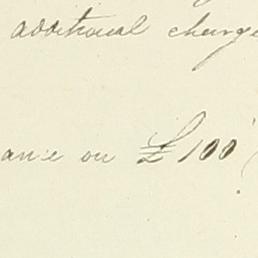 additional charge
ance on £100